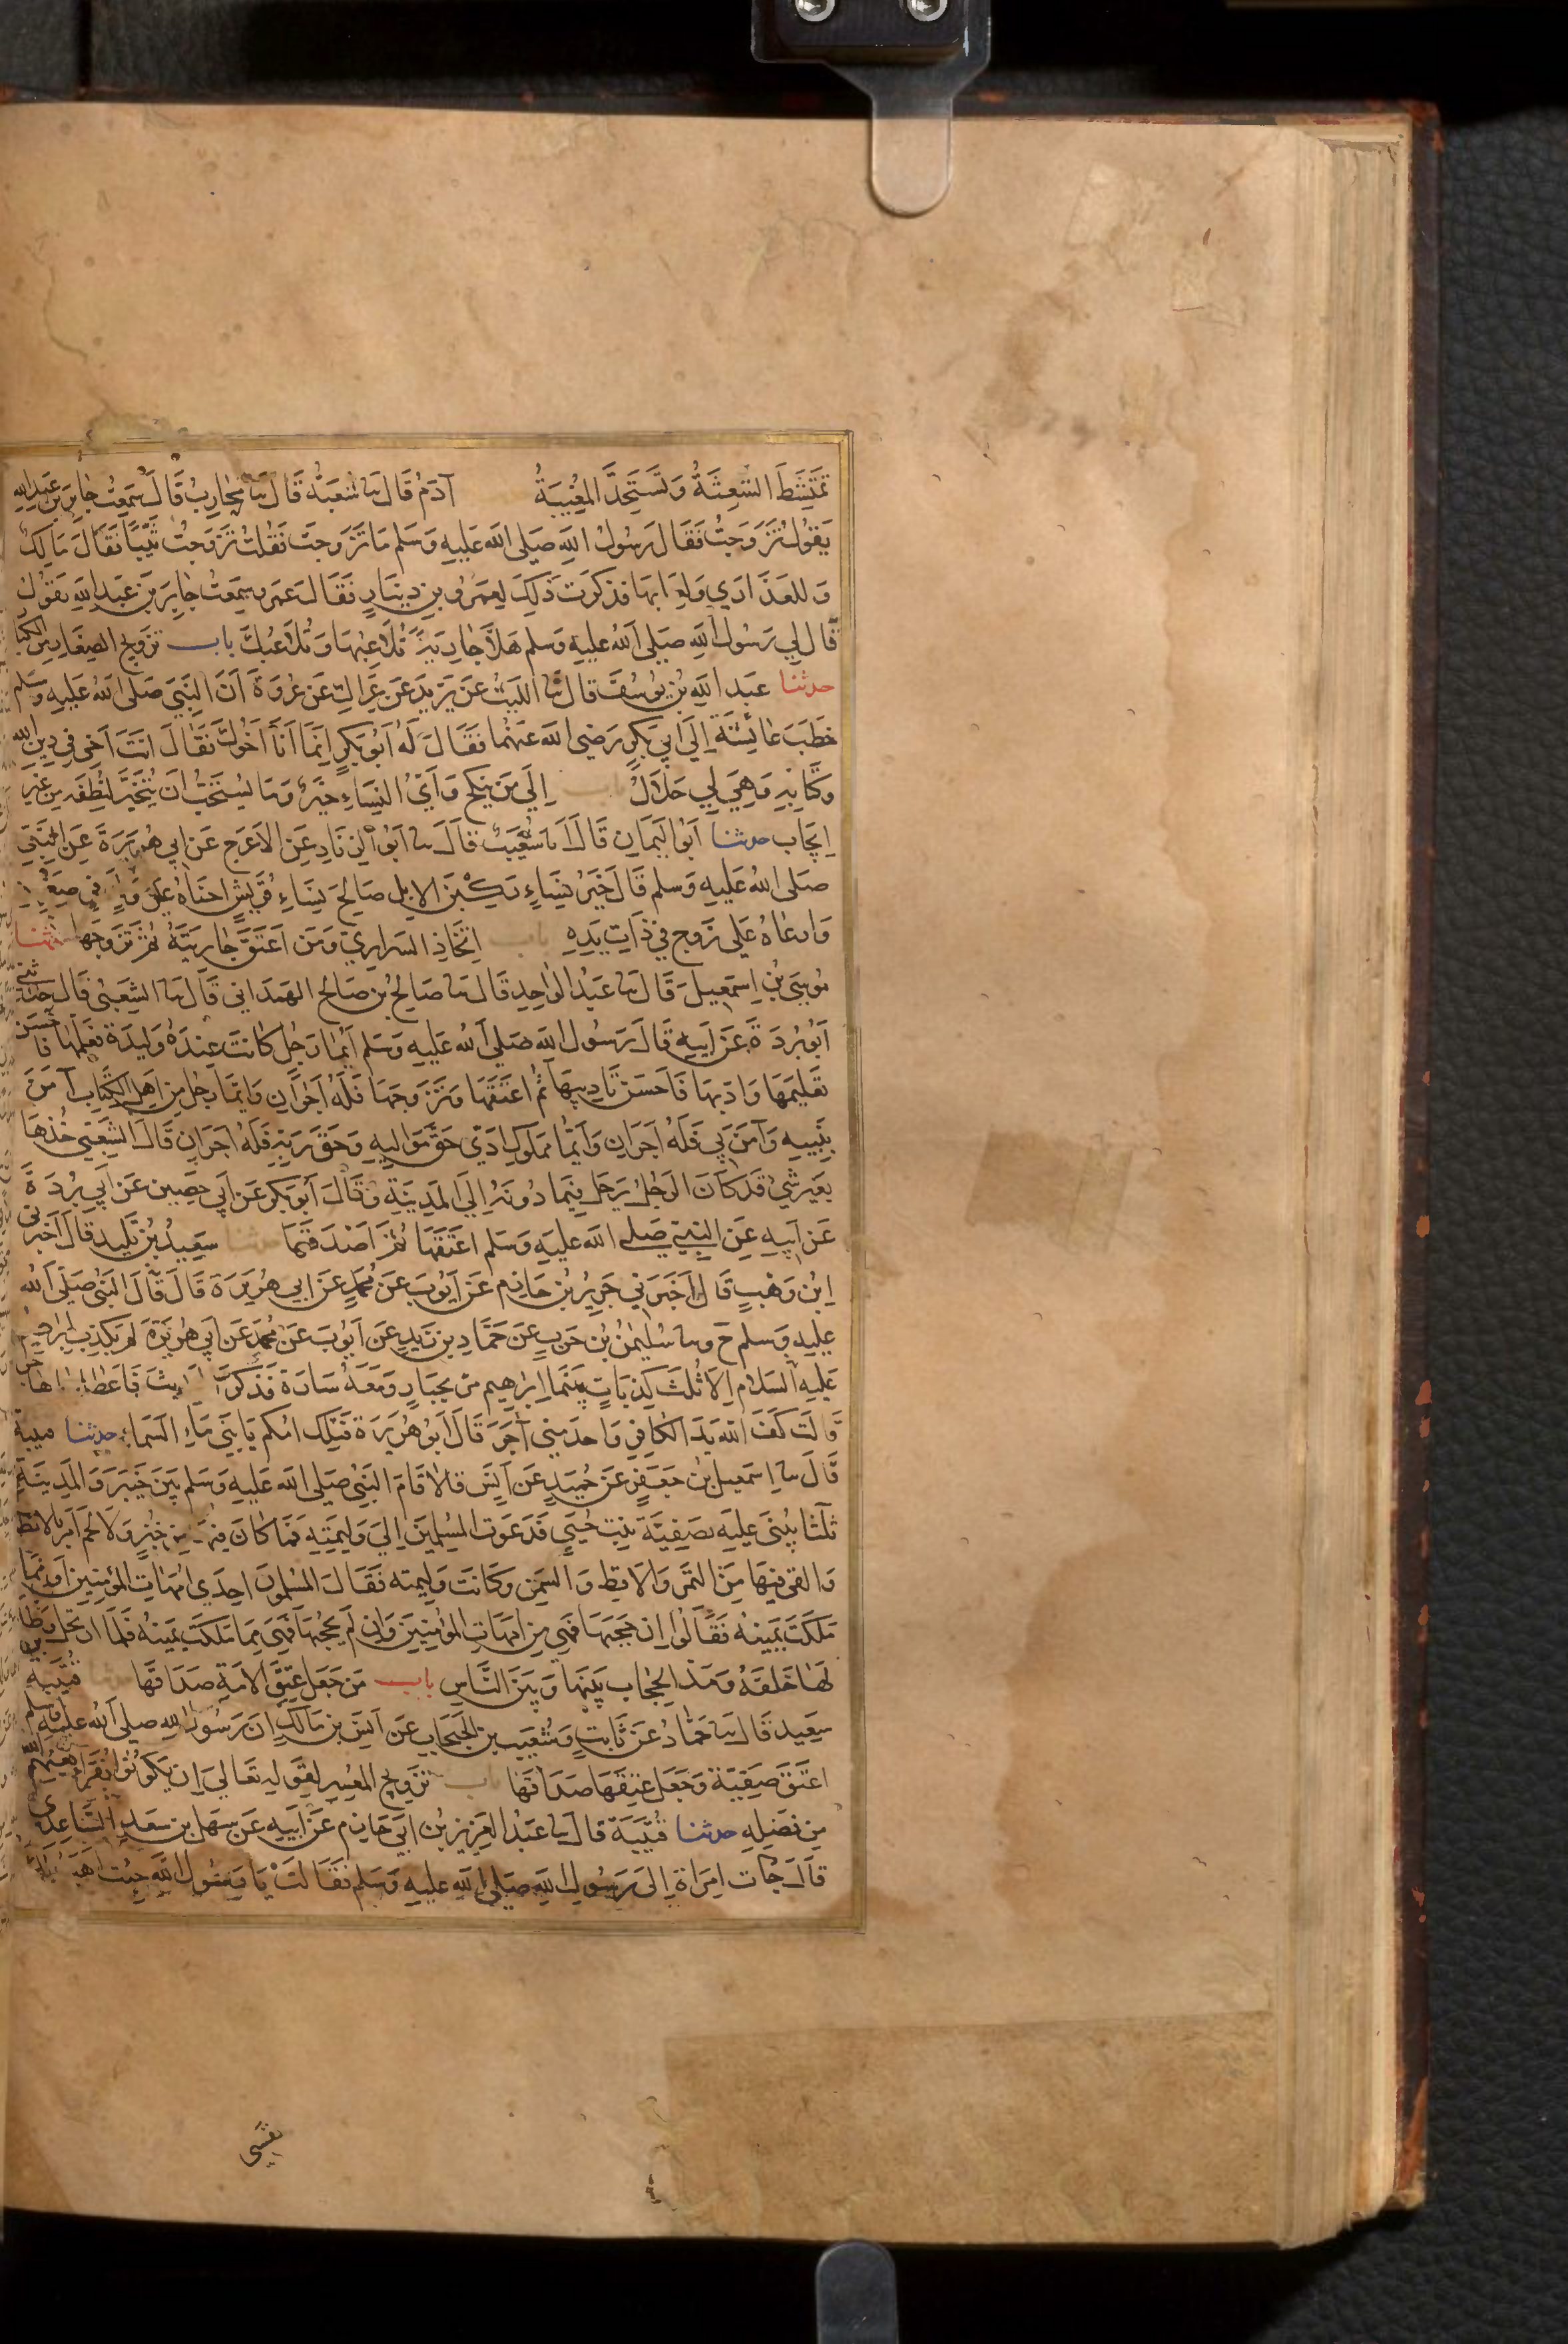 تَمْتَشِطَ الشَّعِثَةُ وَتَسْتَحِدَّ المُغِيبَةُ آدَمُ قَالَ ثنا شُعْبَةُ قَالَ ثنا مُحَارِبٌ قَالَ سَمِعْتُ جَابِرَ بْنَ عَبْدِ اللهِ
يَقُولُ تَزَوَّجْتُ فَقَالَ رَسُولُ اللهِ صَلَّى اللهُ عَلَيْهِ وَسَلَّم مَا تَزَوَّجْتَ فَقُلْتُ تَزَوَّجْتُ ثَيِّبًا فَقَالَ مَا لَكَ
وَللعَذَارَي وَلِعَابِهَا فذكرت ذَلِكَ لِعَمْرِو بنِ دِينَارٍ فَقَالَ عَمرو سَمِعْتُ جَابِرَ بنَ عَبْدِ اللهِ يَقُولُ
قَال لِي رَسُولُ اللهِ صَلَّى اللهُ عليهِ وسلم هَلَّا جَارِيَةً تُلَاعِبُهَا وَتُلَاعِبُكَ باب تزويج الصِغَارِ مِنَ الكِبَار
حدثنا عَبدُ اللهِ بْنُ يُوسُفَ قَالَ ثنا اللَيْثُ عَنْ يَزِيدَ عَنْ عِرَاكٍ عَنْ عُرْوَةَ أَنَّ النَّبِيَ صَلَّى اللهُ عَلَيهِ وَسَلَّم
خَطَبَ عَائِشَةَ إِلَى أَبِي بَكْرٍ رَضِيَ اللهُ عَنْهُمَا فَقَالَ لَهُ أَبُو بَكْرٍ إِنَّمَا أَنَا أَخُوكَ فَقَالَ أَنْتَ أَخِي فِي دِينِ اللهِ
وَكِتَابِهِ وَهِيَ لِي حَلَالٌ باب إِلَي مَنْ يَنْكِحُ وَأَيُّ النِّسَاءِ خَيْرٌ وَمَا يُسْتَحَبُّ أَنْ يَتَخَيَّرَ لِنُطَفِهِ مِنْ غَيْرِ
إِيجَاب حدثنا أَبُو اليَمَانِ قَالَ انا شُعَيْبٌ قَالَ ثنا أَبُو الزِّنَادِ عَنِ الأَعْرَجِ عَنْ أَبِي هُرَيرَةَ عَنِ النَّبِيِّ
صَلَّى اللهُ عَلَيهِ وَسَلَّم قَالَ خَيْرُ نِسَاءٍ رَكِبْنَ الإِبِلَ صَالِحُ نِسَاءِ قُرَيْشٍ أحْنَاهُ عَلَى وَلَدٍ فِي صِغَرِهِ
وَارعَاهُ عَلَى زَوْجٍ فِي ذَاتِ يَدِهِ باب اتِّخَاذِ السَرَارِيّ وَمَن أَعْتَقَ جَارِيَتَهُ ثُمَّ تَزَوَّجَهَا حدثنا
مُوسَى بْنُ إِسْمَعِيلَ قَالَ ثنا عَبْدُ الوَاحِدِ قَالَ ثنا صَالِحُ بْنُ صَالِحٍ الهَمْدَانِي قَالَ ثنا الشَّعْبِيُّ قَالَ حَدَّثَنِي
أَبُو بُرْدَةَ عَنْ أَبِيهِ قَالَ رَسُولُ اللهِ صَلَّى اللهُ عَلَيهِ وَسَلم أَيُّمَا رَجُلٍ كَانَتْ عِنْدَهُ وَلِيدَة فَعَلَّمَهَا فَأَحْسَنَ
تَعْلِيمَهَا وَأَدَّبَهَا فَأَحْسَنَ تَأْدِيبَهَا ثُمَّ أَعْتَقَهَا وَتَزَوَّجَهَا فَلَهُ أَجْرَانِ وَأَيُّمَا رَجُلٍ مِنْ أَهلِ الكِتَابِ آمَنَ
بِنَبِيِّهِ وَآمَنَ بِي فَلَهُ أَجْرَانِ وَأَيُّمَا مَمْلُوكٍ أَدَّى حَقَّ مَوَالِيهِ وَحَقَّ رَبِّهِ فَلَهُ أَجْرَانِ قَالَ الشَّعْبِي خُذْهَا
بِغَيْرِ شَيْءٍ قَدْ كَانَ الرَجُلُ يَرْحَلُ فِيمَا دُونَهُ إِلَى المَدِينَةِ وَقَالَ أَبُو بَكْرٍ عَنْ أَبِي حَصِينٍ عَنْ أَبِي بُرْدَةَ
عَنْ أَبِيهِ عَنِ النَّبِيِّ صَلَّى اللهُ عَلَيهِ وَسَلَّم أَعْتَقَهَا ثُمَّ أَصْدَقَهَا حدثنا سَعِيدُ بْنُ تَلِيدٍ قَالَ أَخْبَرَنِي
ابْنُ وَهْبٍ قَالَ أَخْبَرَنِي جَرِيرُ بْنُ حَازِمٍ عَنْ أَيُّوبَ عَنْ مُحَمَّدٍ عَنْ أَبِي هُرَيْرَةَ قَالَ قَالَ النَّبِيُّ صَلَّى اللهُ
عَلَيهِ وَسلم ح وثنا سُلَيْمَنُ بْنُ حَرْبٍ عَنْ حَمَّادِ بنِ زَيْدٍ عَنْ أَيُّوبَ عَنْ مُحَمَّدٍ عَنْ أَبِي هُرَيْرَةَ لَمْ يَكْذِبْ إِبْرَاهِيمُ
عَلَيْهِ السَلَامُ إِلَّا ثَلَثَ كَذَبَاتٍ بَيْنَمَا إِبْرَاهِيمُ مَرَّ بِجَبَّارٍ وَمَعَهُ سَارَة فَذَكَرَ الحديث فَأَعْطَاهَا هَاجَرَ
قَالَتْ كَفَّ اللهُ يَدَ الكَافِرِ وَأَخدَمَنِي آجَرَ قَالَ أَبُو هُرَيْرَةَ فَتِلْكَ أُمُّكُمْ يَا بَنِي مَاءِ السَمَاءِ حدثنا قتيبة
قَالَ ثنا إِسْمَعِيلُ بْنُ جَعْفَرٍ عَنْ حُمَيْدٍ عَنْ أَنَسٍ قَالَ أَقَامَ النَّبِيُّ صَلَّى اللهُ عَلَيهِ وَسَلم بَيْنَ خَيْبَرَ وَالمَدِينَةِ
ثَلَثًا يُبْنَى عَلَيْهِ بِصَفِيَّةَ بِنْتِ حُيَيٍّ فَدَعَوْتُ المُسْلِمِينَ إِلَى وَلِيمَتِهِ فَمَا كَانَ فِيهَا مِنْ خُبْزٍ وَلَا لَحْمٍ أَمَرَ بِالأَنْطَاعِ
وَالقى فِيهَا مِنَ التَّمْرِ وَالأَقِطِ وَالسَمْنِ وَكَانَتْ وَلِيمَتَهُ فَقَالَ المُسْلِمُونَ إِحْدَى أُمَّهَاتِ المُؤْمِنِينَ أَوْ مِمَّا
مَلَكَتْ يَمِينُهُ فَقَالُوا إِنْ حَجَبَهَا فَهِيَ مِنْ أُمَّهَاتِ المُؤْمِنِينَ وَإِنْ لَمْ يَحْجُبْهَا فَهِيَ مِمَّا مَلَكَتْ يَمِينُهُ فَلَمَّا ارْتَحَلَ وَطَّا
لَهَا خَلْفَهُ وَمَدَّ الحِجَابَ بَيْنَهَا وَبَيْنَ النَّاسِ باب مَنْ جَعَلَ عِتْقَ الأَمَةِ صَدَاقَهَا حدثنا قُتَيْبَة بْنُ
سَعِيدٍ قَالَ ثنا حَمَّادٌ عَنْ ثَابِتٍ وَشُعَيْبِ بْنِ الحَبْحَابِ عَنْ أَنَسِ بْنِ مَالِكٍ أَنَّ رَسُولَ اللهِ صلى الله عَلَيْهِ وَسلم
أَعْتَقَ صَفِيَّة وَجَعَلَ عِتْقَهَا صَدَاقَهَا باب تَزْوِيجِ المُعْسِرِ لِقَوْلِهِ تَعَالَى إِنْ يَكُونُوا فُقَرَاءَ يُغْنِهِمُ اللهُ
مِنْ فَضْلِهِ حدثنا قُتَيْبَةُ قَالَ ثنا عَبْدُ العَزِيزِ بْنُ أَبِي حَازِمٍ عَنْ أَبِيهِ عَنْ سَهْلِ بْنِ سَعْدٍ السَّاعِدِي
قَالَ جَاتِ امْرَأَة إِلَى رَسُولِ اللهِ صَلَّى اللهُ عَلَيهِ وَسَلم فَقَالَتْ يَا رَسُولَ اللهِ جِئْتُ أَهَبُ لَكَ
نَفْسِي